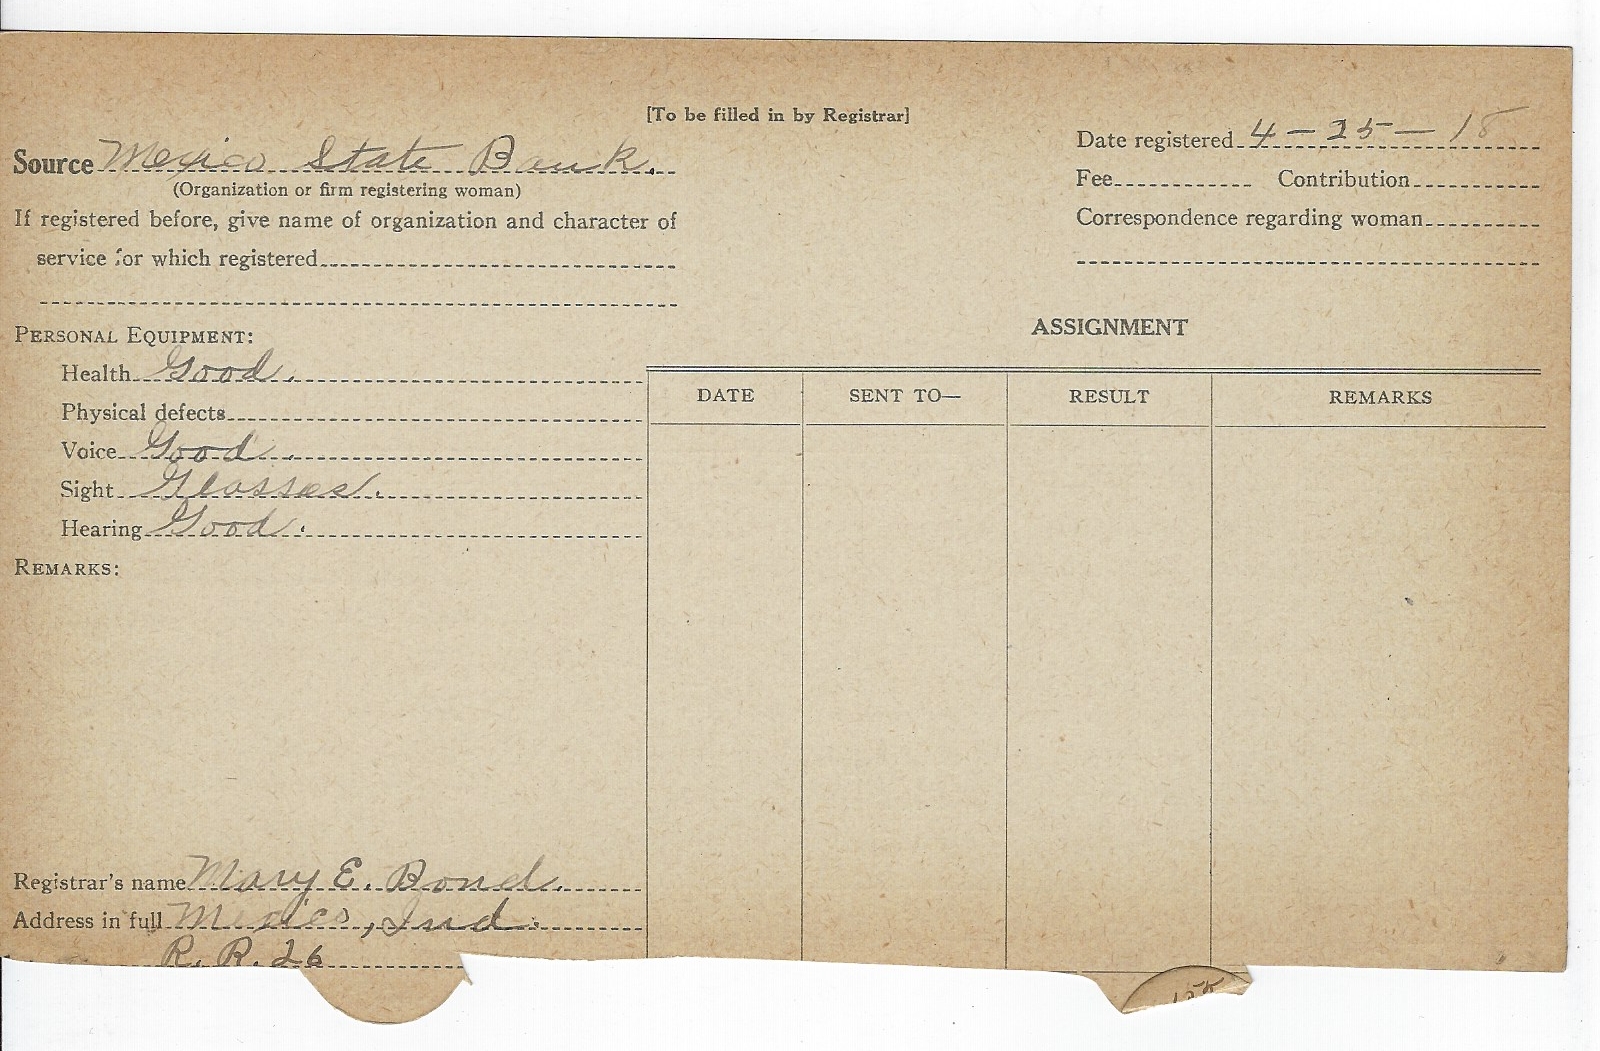 [To be filled in by Registrar]
Source Mexico State Bank.
(Organization or firm registering woman)
If registered before, give name of organization and character of
service for which registered
Date registered 4-25-18
Fee Contribution
Correspondence regarding woman
PERSONAL EQUIPMENT:
Health Good.
Physical defects
Voice Good.
Sight Glasses.
Hearing Good.
REMARKS:
ASSIGNMENT
DATE SENT TO— RESULT REMARKS
Registrar's name Mary E. Bond.
Address in full Mexico, Ind.
R. R. 26